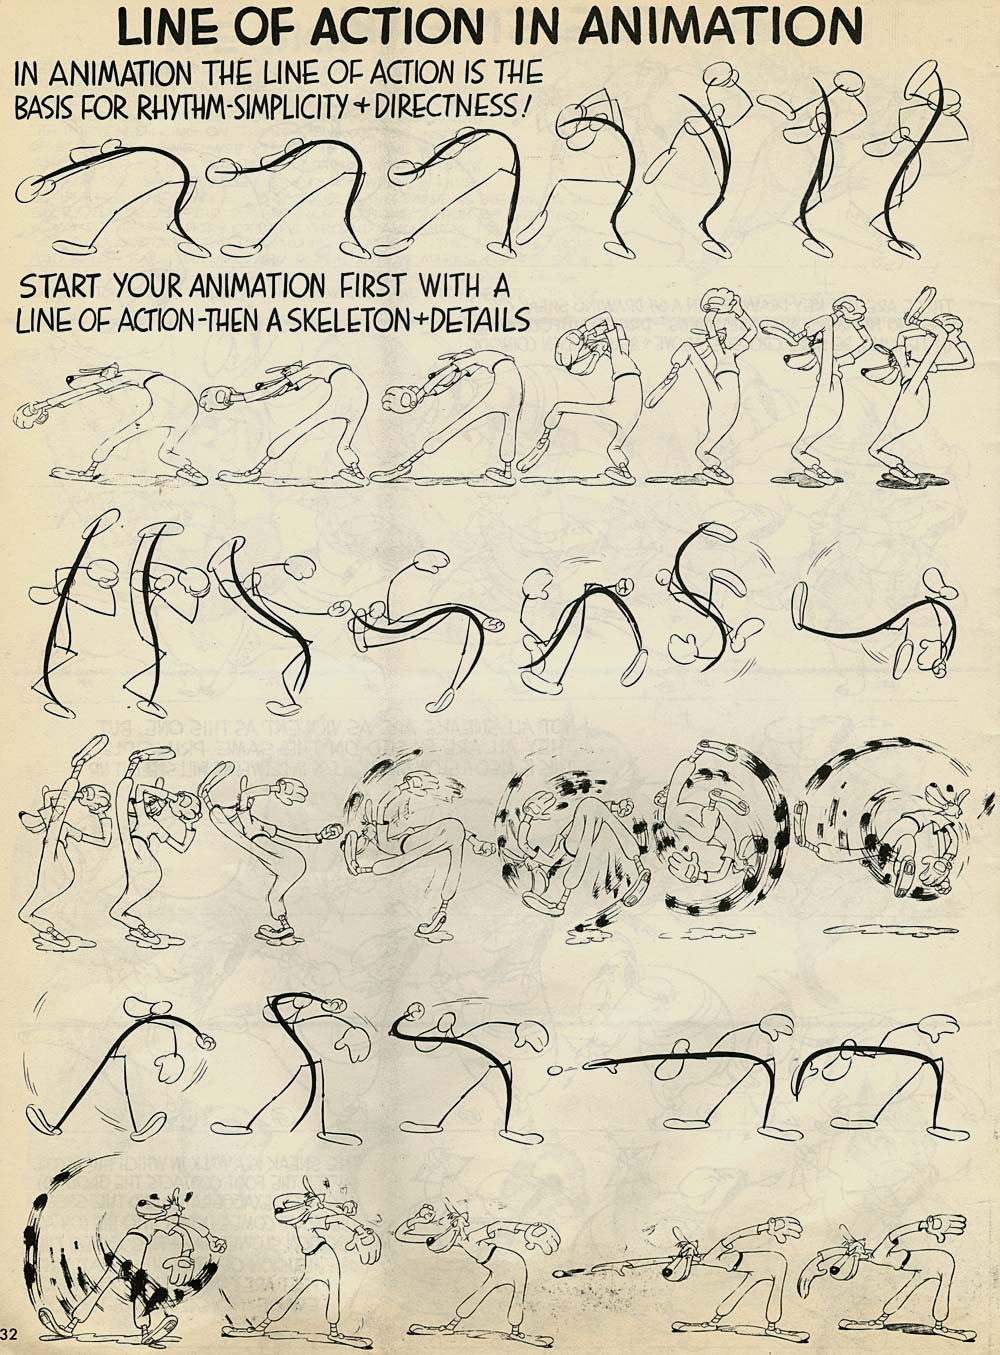 LINE OF ACTION IN ANIMATION
IN ANIMATION THE LINE OF ACTION IS THE
BASIS FOR RHYTHM-SIMPLICITY + DIRECTNESS!
START YOUR ANIMATION FIRST WITH A
LINE OF ACTION-THEN A SKELETON+DETAILS
32